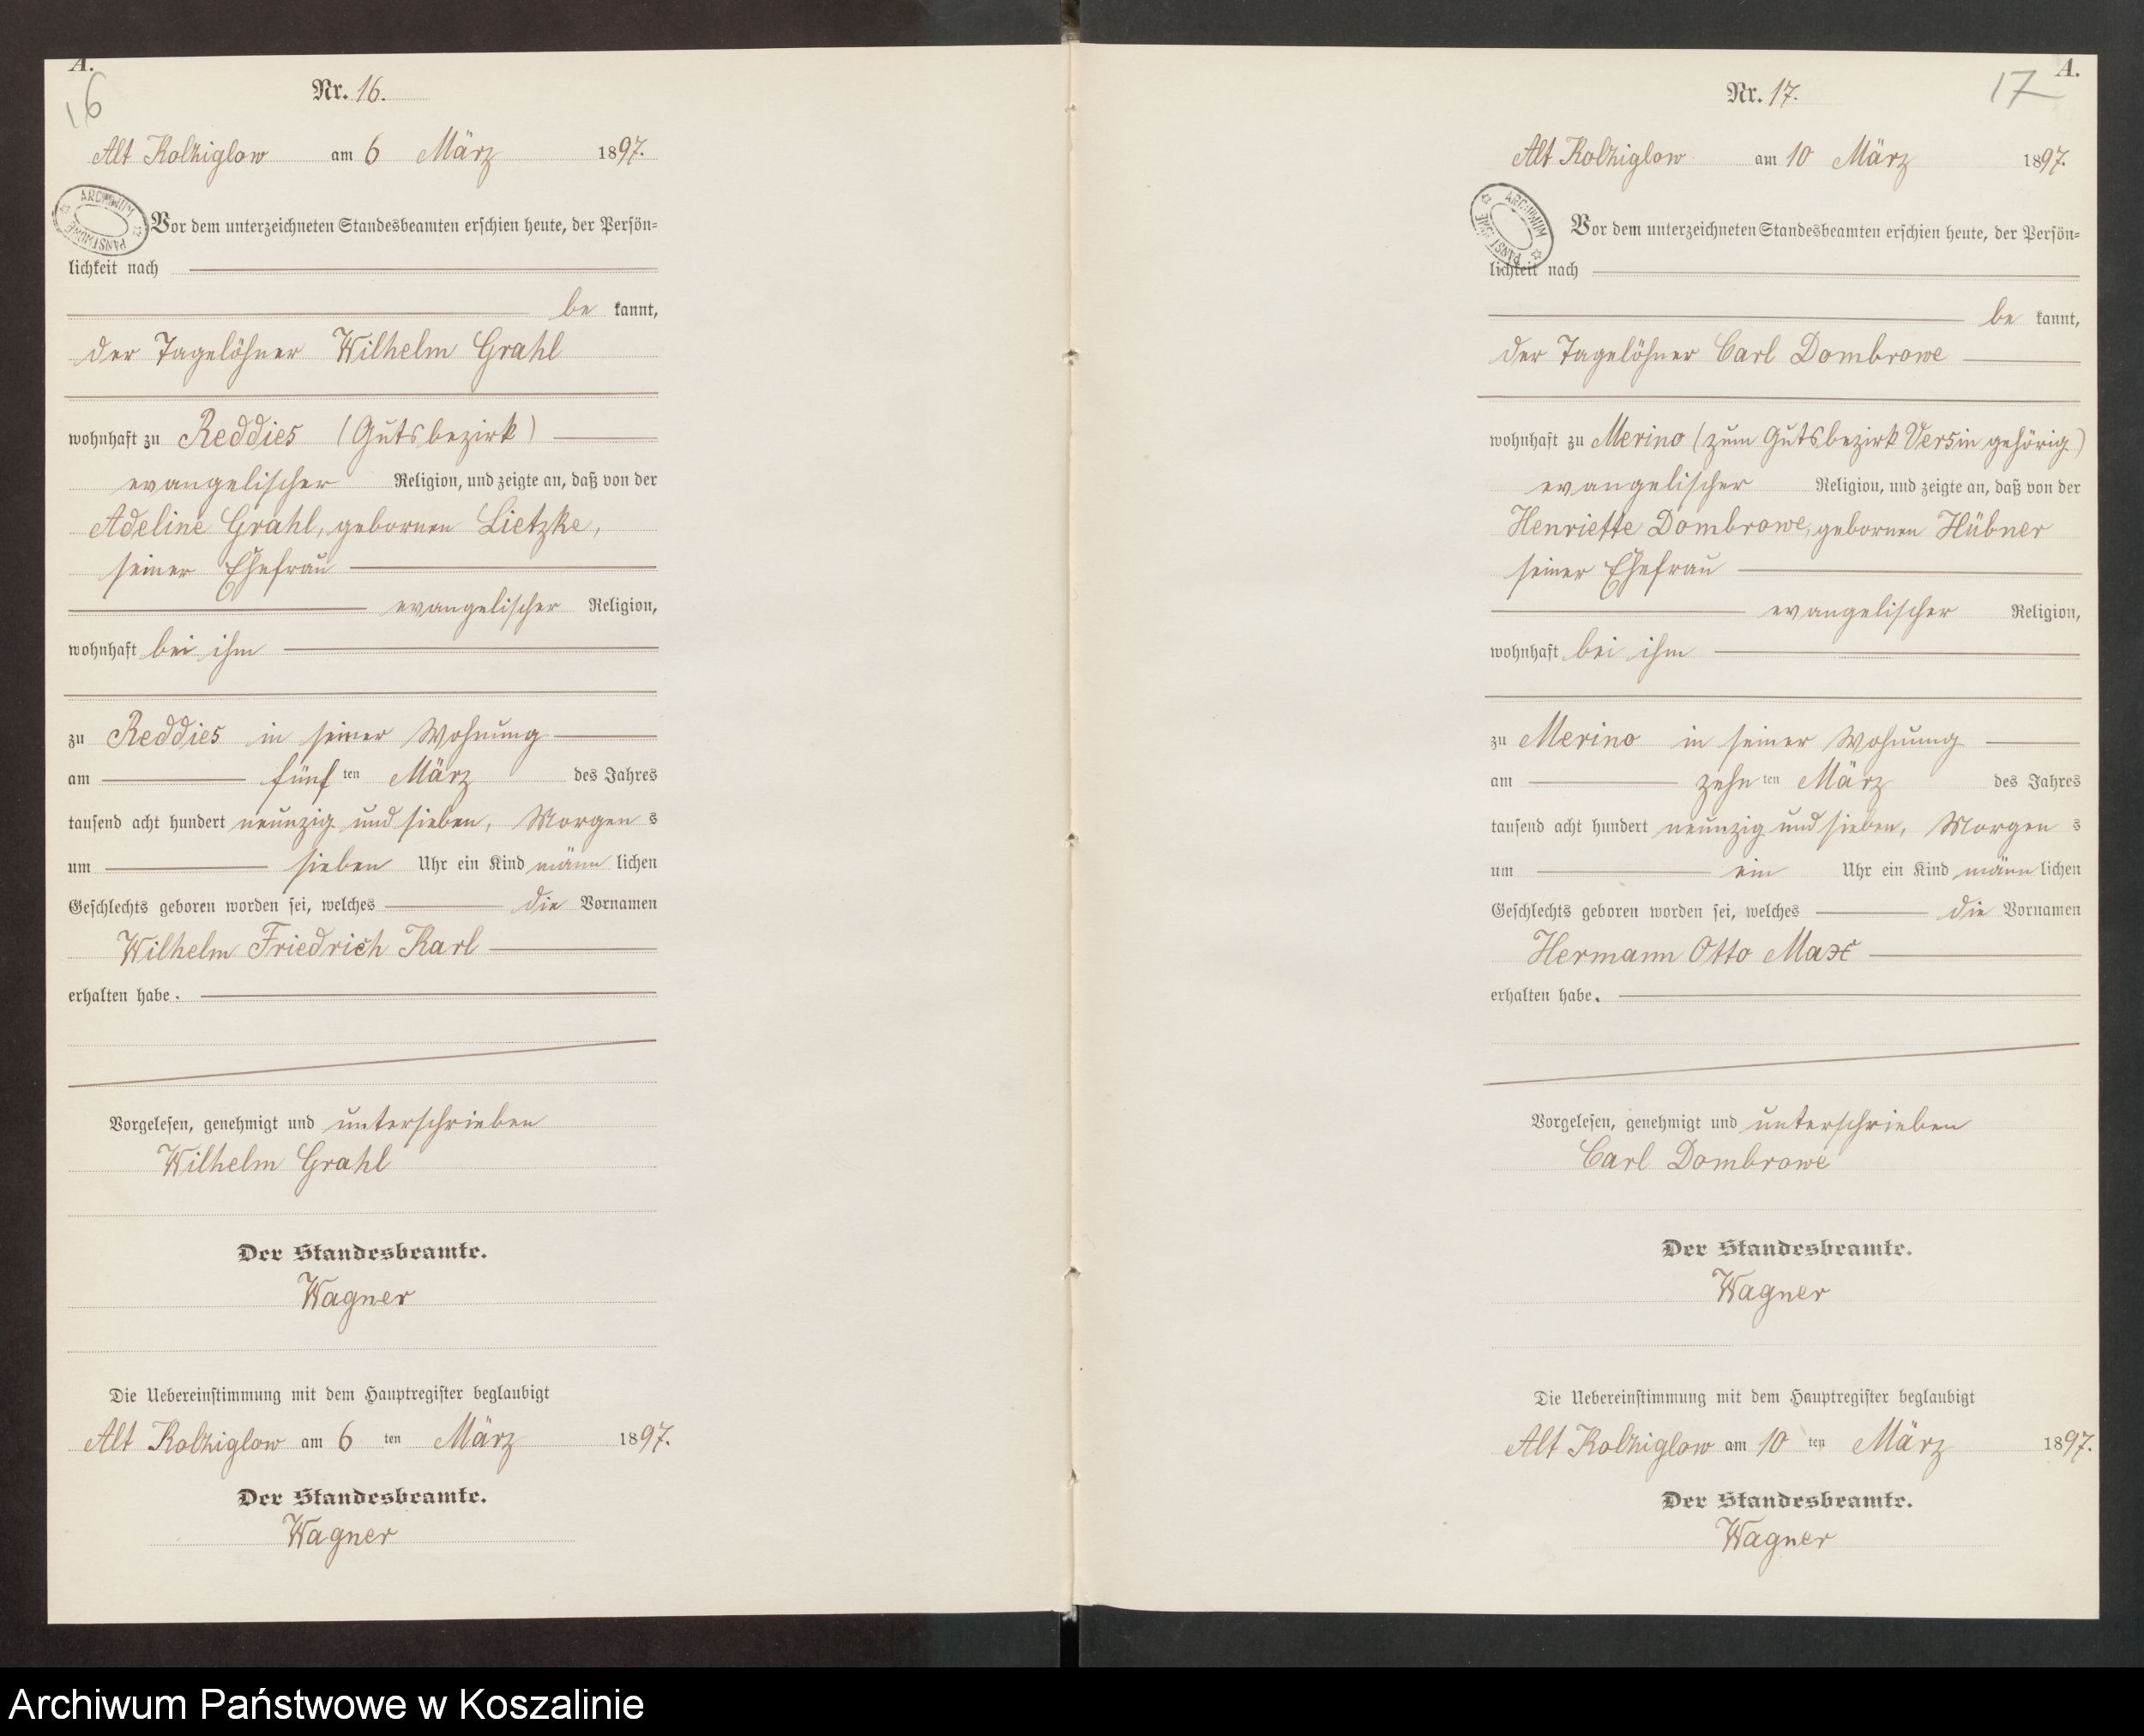 A.
16
Nr. 16.
Alt Kolziglow am 6 März 1897.
ARCHIWUM PAŃSTWOWE
Vor dem unterzeichneten Standesbeamten erschien heute, der Persön=
lichkeit nach
be kannt,
der Tagelöhner Wilhelm Grahl
wohnhaft zu Reddies (Gutsbezirk)
evangelischer Religion, und zeigte an, daß von der
Adeline Grahl, gebornen Lietzke,
seiner Ehefrau
evangelischer Religion,
wohnhaft bei ihm
zu Reddies in seiner Wohnung
am fünf ten März des Jahres
tausend acht hundert neunzig und sieben, Morgen s
um sieben Uhr ein Kind männ lichen
Geschlechts geboren worden sei, welches die Vornamen
Wilhelm Friedrich Karl
erhalten habe.
Vorgelesen, genehmigt und unterschrieben
Wilhelm Grahl
Der Standesbeamte.
Wagner
Die Uebereinstimmung mit dem Hauptregister beglaubigt
Alt Kolziglow am 6 ten März 1897.
Der Standesbeamte.
Wagner
A.
17
Nr. 17.
Alt Kolziglow am 10 März 1897.
ARCHIWUM PAŃSTWOWE
Vor dem unterzeichneten Standesbeamten erschien heute, der Persön=
lichkeit nach
be kannt,
der Tagelöhner Carl Dombrowe
wohnhaft zu Merino (zum Gutsbezirk Versin gehörig)
evangelischer Religion, und zeigte an, daß von der
Henriette Dombrowe, gebornen Hübner
seiner Ehefrau
evangelischer Religion,
wohnhaft bei ihm
zu Merino in seiner Wohnung
am zehn ten März des Jahres
tausend acht hundert neunzig und sieben, Morgen s
um ein Uhr ein Kind männ lichen
Geschlechts geboren worden sei, welches die Vornamen
Hermann Otto Max
erhalten habe.
Vorgelesen, genehmigt und unterschrieben
Carl Dombrowe
Der Standesbeamte.
Wagner
Die Uebereinstimmung mit dem Hauptregister beglaubigt
Alt Kolziglow am 10 ten März 1897.
Der Standesbeamte.
Wagner
Archiwum Państwowe w Koszalinie